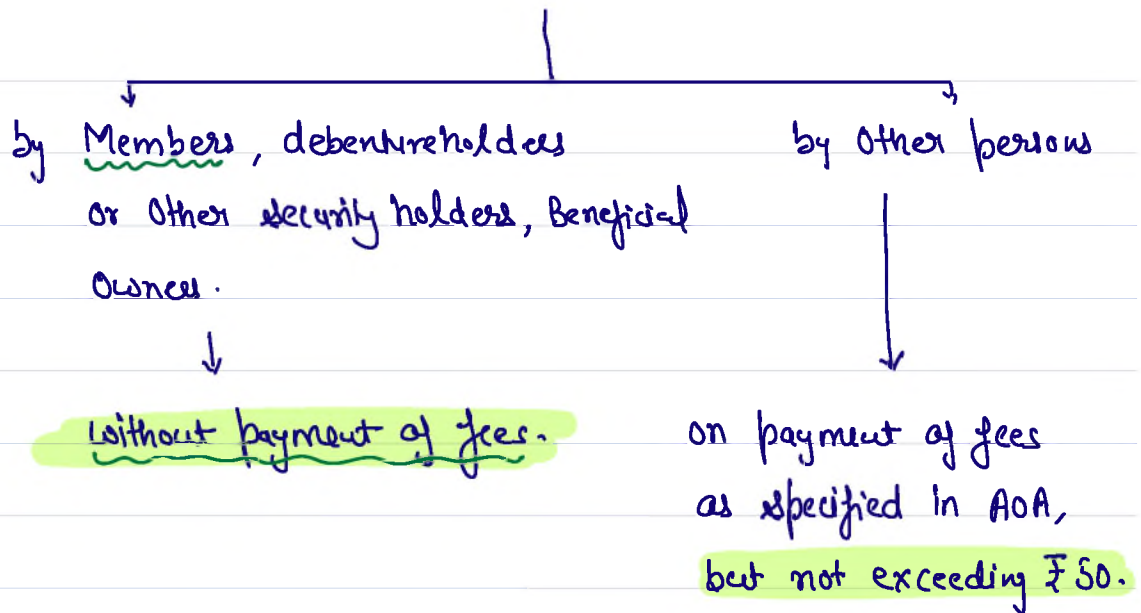 by Members, debentureholders
or Other security holders, Beneficial
Owners.
without payment of fees.
by Other persons
on payment of fees
as specified in AOA,
but not exceeding ₹ 50.